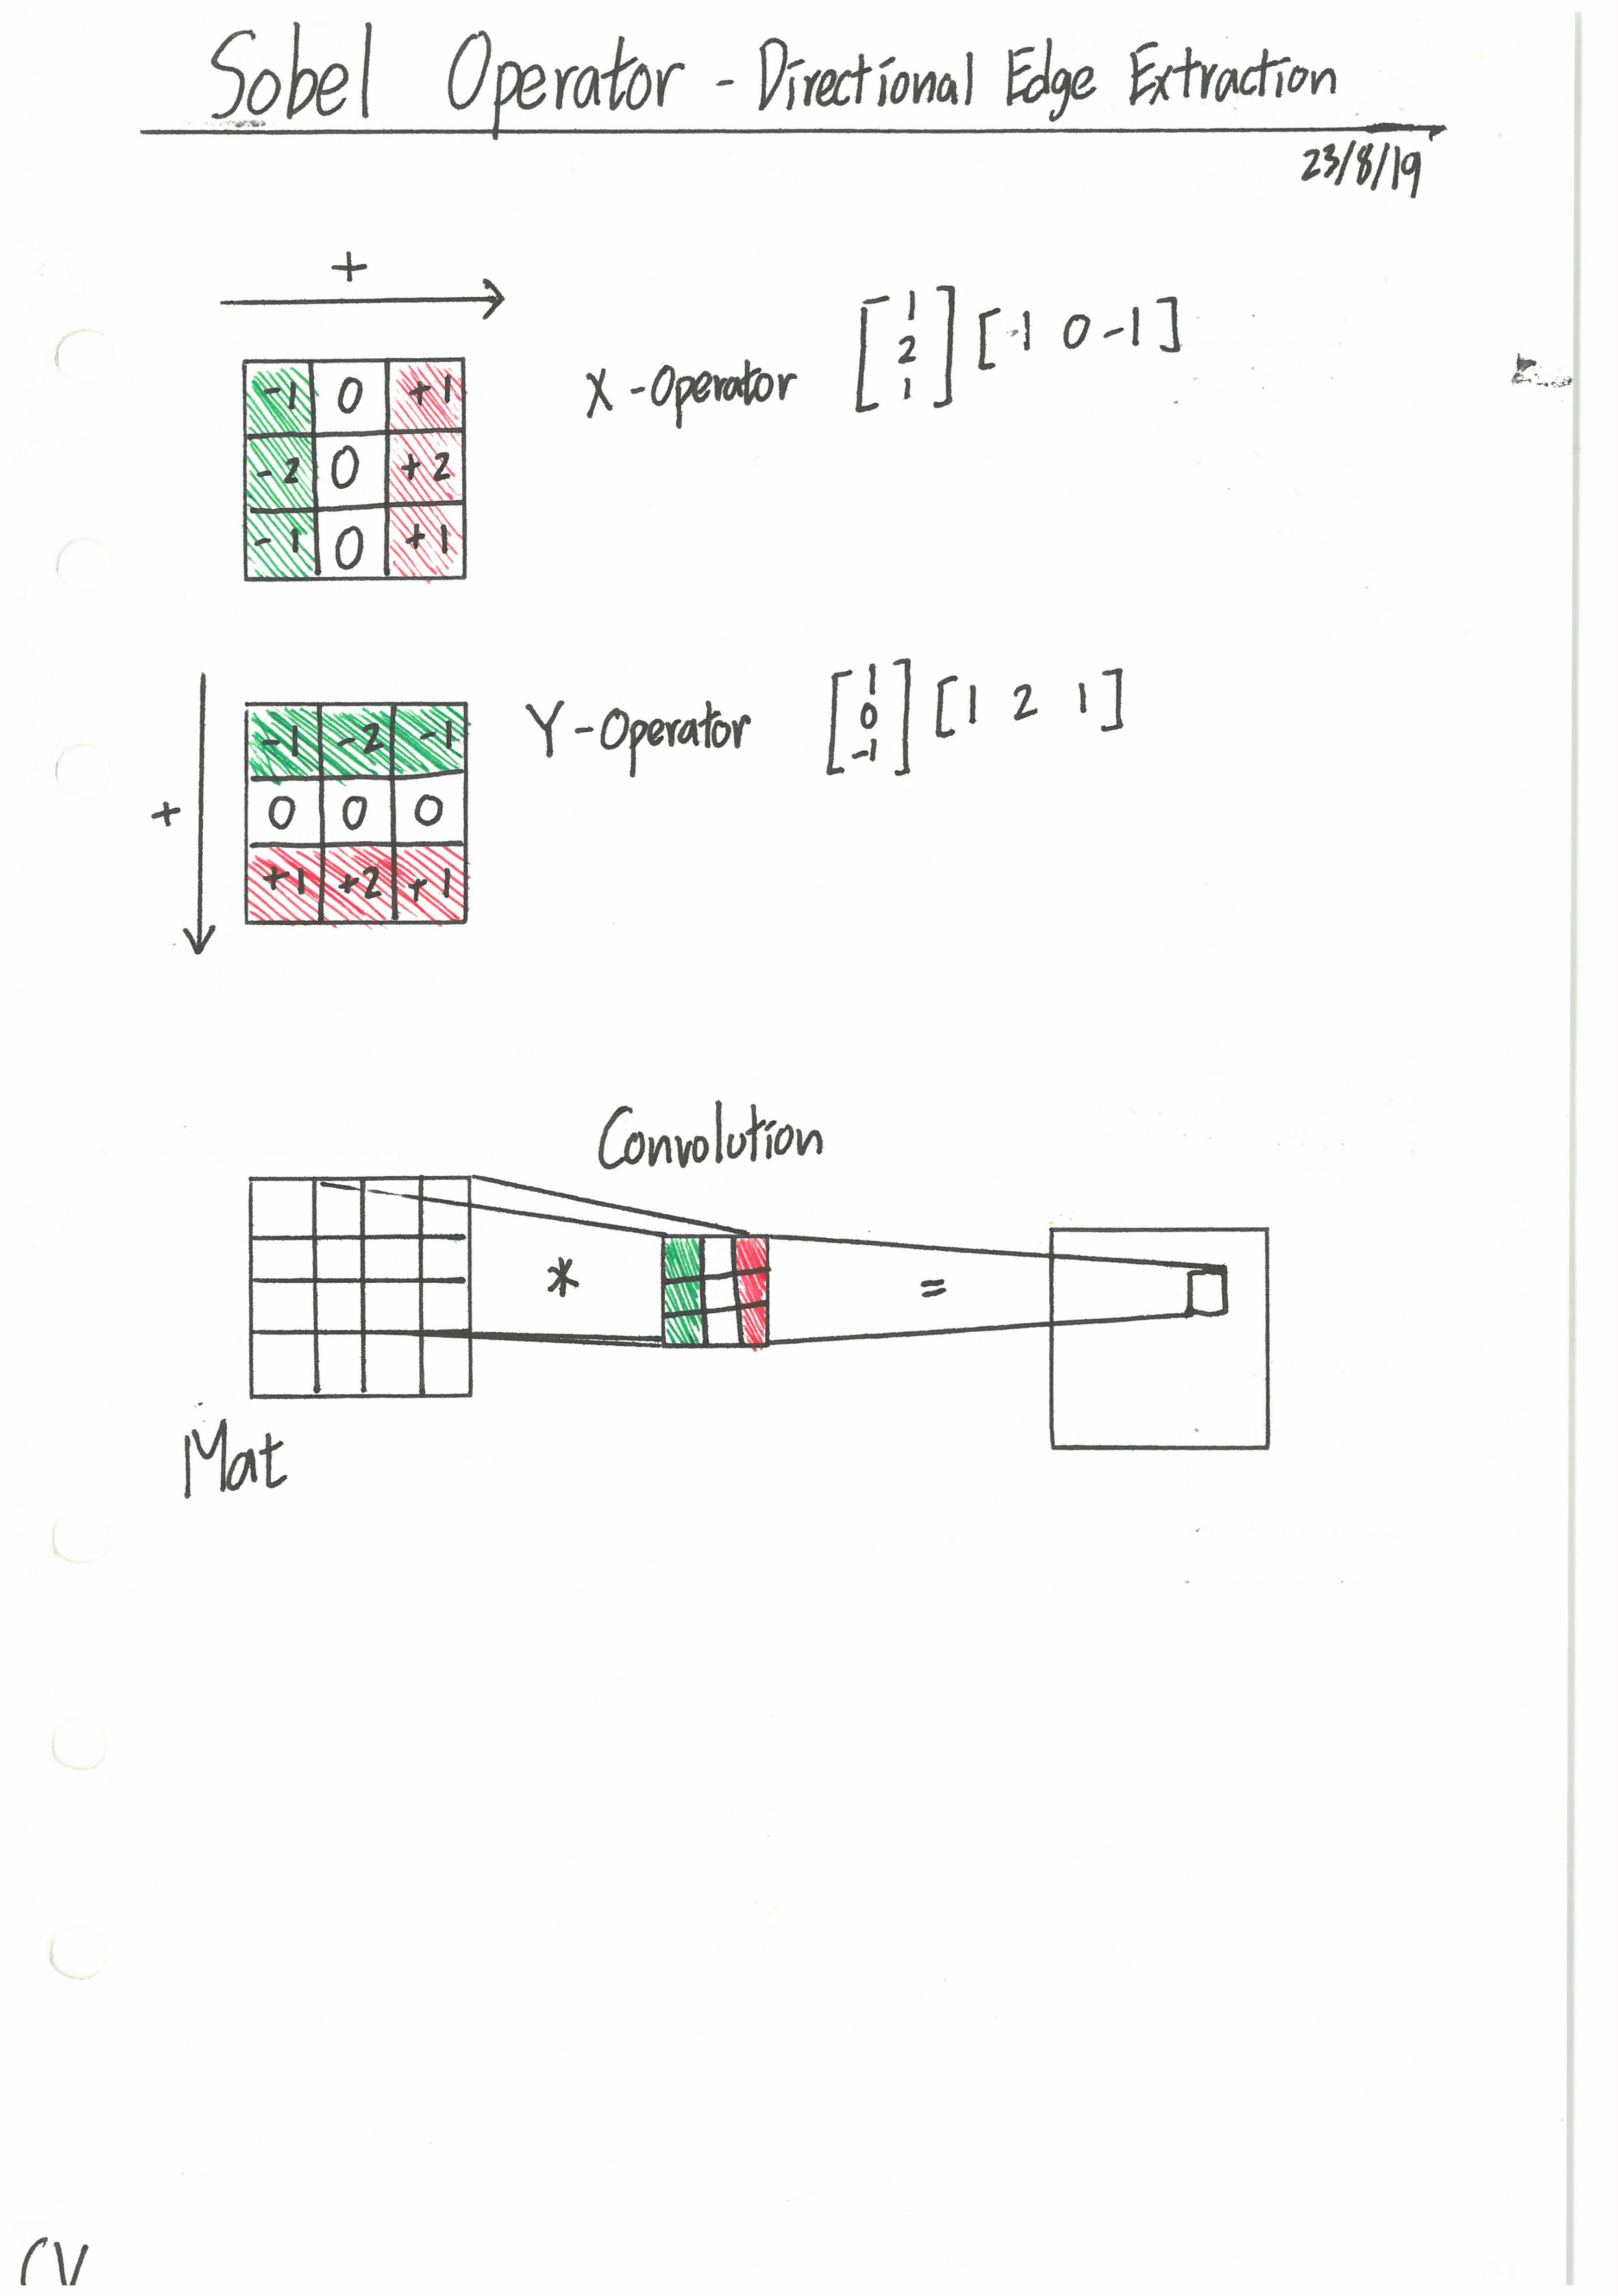 Sobel Operator - Directional Edge Extraction
23/8/19
+
-1 0 +1
-2 0 +2
-1 0 +1
X-Operator
1
2
1
[1 0 -1]
+
-1 -2 -1
0 0 0
+1 +2 +1
Y-Operator
1
0
-1
[1 2 1]
Convolution
* =
Mat
CV